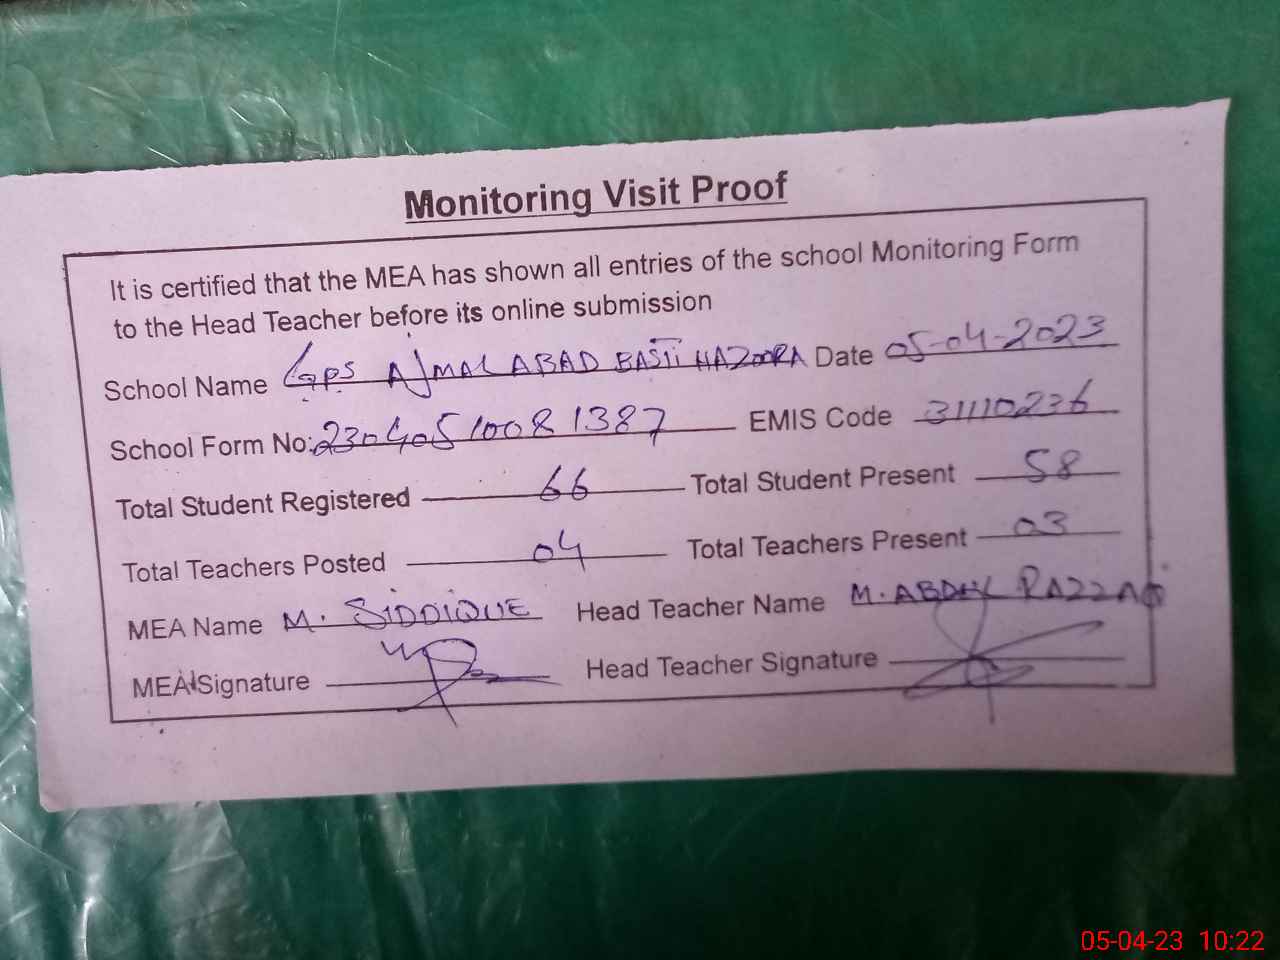 Monitoring Visit Proof
It is certified that the MEA has shown all entries of the school Monitoring Form
to the Head Teacher before its online submission
School Name GPS AJMAL ABAD BASTI HAZOORA Date 05-04-2023
School Form No: 23040510081387 EMIS Code 31110236
Total Student Registered 66 Total Student Present 58
Total Teachers Posted 04 Total Teachers Present 03
MEA Name M. SIDDIQUE Head Teacher Name M. ABDUL RAZZAQ
MEA Signature Head Teacher Signature
05-04-23 10:22